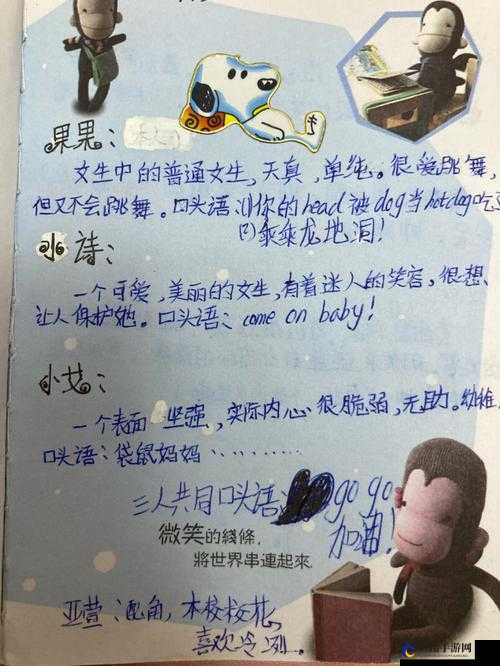 果果:
文生中的普通文生,天真,单纯。很爱跳舞,
但又不会跳舞。口头语:(1)你的head被dog当hotdog吃
(2)乖乖龙地洞!
水诗:
一个可爱,美丽的文生,有着迷人的笑容,很想
让人保护她。口头语:come on baby!
小艾:
一个表面坚强,实际内心很脆弱,无助。幼稚
口头语:袋鼠妈妈……
三人共同口头语:go go
加油!
微笑的綫條,
將世界串連起來.
亚萱:配角,本校校花,
喜欢冷冽。